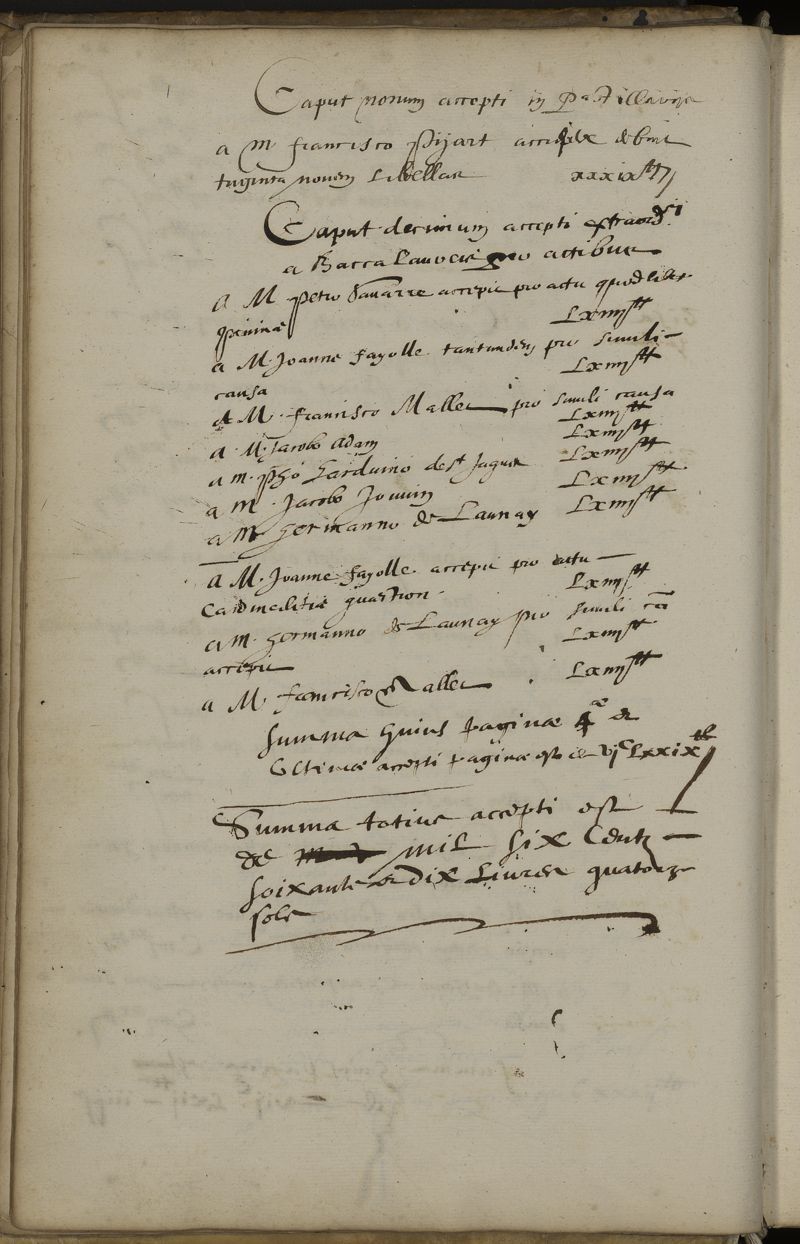 Caput nonum accepti in Pastillaria
a M francisco Pijart accepi debui
triginta novem Libellas xxxix tt
Caput decimum accepti extraordi
a Baccalaureis pro actibus
a M petro accepi pro actu quodlibe
a M. Joanne fayolle tantundem pro simili
causa Lxiiij tt
a M. francisco Mallet pro simili causa
Lxiiij tt
a M. Jacobo Adam Lxiiij tt
a M. Harduino de St Jaques Lxiiij tt
a M. Jacobo Jouvin Lxiiij tt
a M Germanno de Launay Lxiiij tt
a M. Joanne fayolle accepi pro actu
Cardinalitiæ quæstion. Lxiiij tt
a M. Germanno de Launay pro simili cā
accepi Lxiiij tt
a M. francisco Mallet Lxiiij tt
Summa huius paginæ 4æ et
Ultimæ accepti paginæ est de vjc Lxxix tt
Summa totius accepti est
de mil six Centz
soixante et dix Livres quatorze
sols